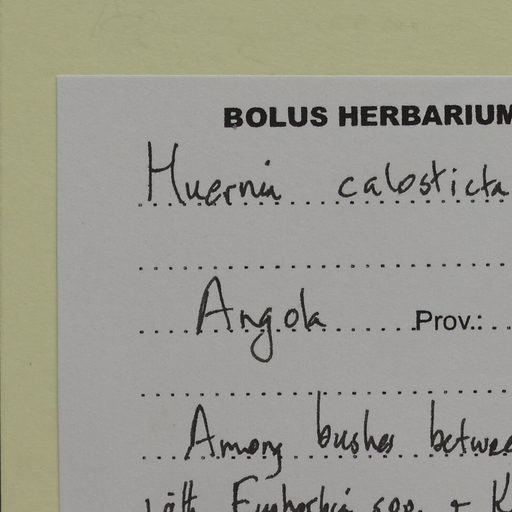 BOLUS HERBARIUM
Huernia calosticta
Angola Prov.:
Among bushes betwee
with Euphorbia spp. + K